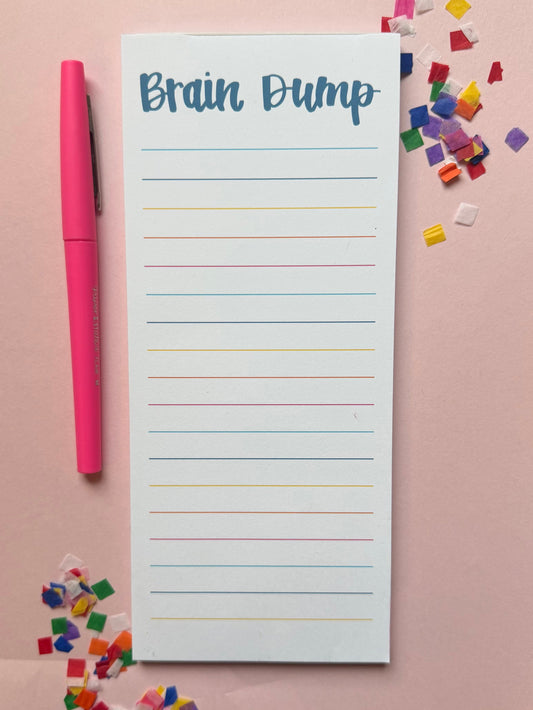 Brain Dump